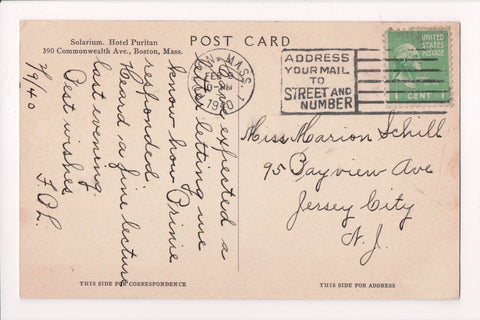 Solarium. Hotel Puritan
390 Commonwealth Ave., Boston, Mass.
POST CARD
MASS. 1
FEB
1940
ADDRESS
YOUR MAIL
TO
STREET AND
NUMBER
UNITED STATES
POSTAGE
1 CENT 1
expected a
letter letting me
know how Prime
responded.
Heard a fine lecture
last evening.
Best wishes
F.O.L.
2/9/40
Miss Marion Schill
95 Bayview Ave
Jersey City
N.J.
THIS SIDE FOR CORRESPONDENCE
THIS SIDE FOR ADDRESS